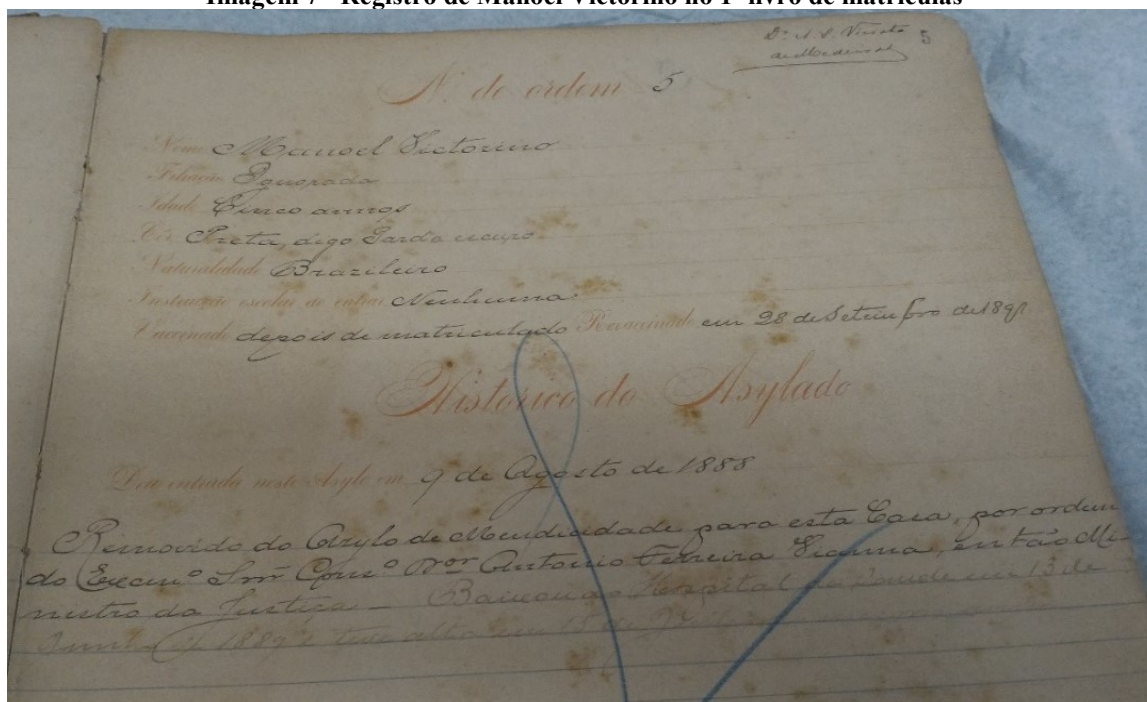 Imagem 7 - Registro de Manoel Victorino no 1º livro de matrículas
5
N. de ordem 5
Nome Manoel Victorino
Filiação Ignorada
Idade Cinco annos
Côr Preta, digo Parda escuro
Naturalidade Brazileiro
Instrucção escolar ao entrar Nenhuma
Vaccinado depois de matriculado Revaccinado em 28 de Setembro de 1891
Historico do Asylado
Deu entrada neste Asylo em 9 de Agosto de 1888
Removido do Asylo de Mendicidade para esta Casa, por ordem
do Excmº Snr Consº Dor Antonio Ferreira Vianna, então Mi-
nistro da Justiça - Baixou ao Hospital da Saude em 13 de
1889 e teve alta em 15 de